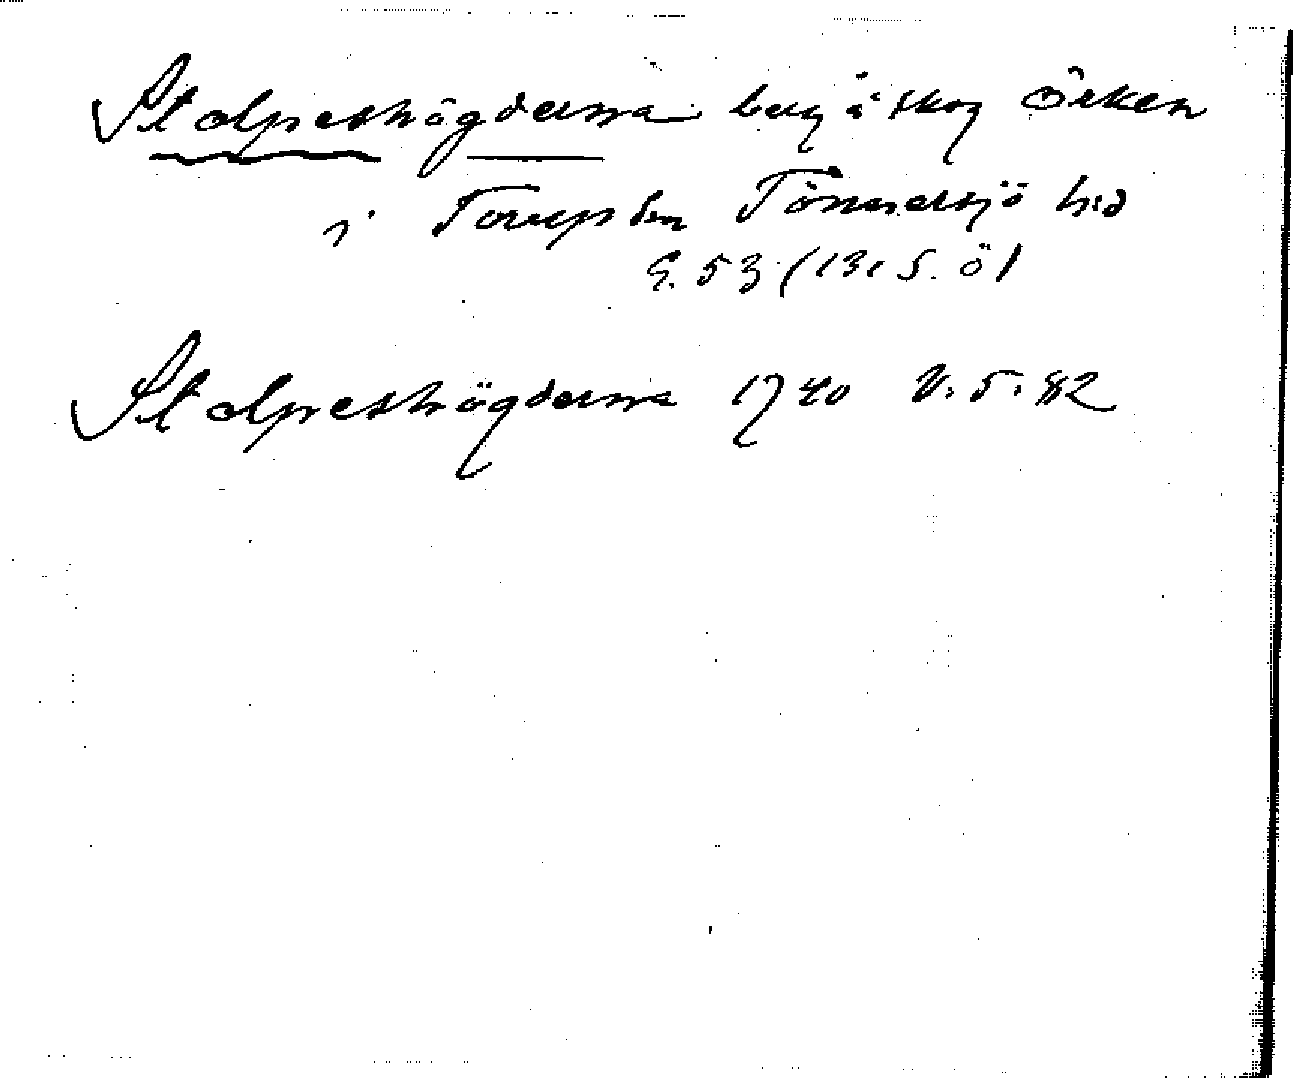 Stolpeshögderna berg å skog Örken
i Torup sn Tönnersjö hd
G. 53 (131 S. öl
Stolpeshögderna 1740 V. 5. 82